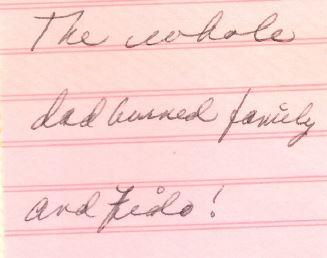 The whole
dadburned family
and Fido!